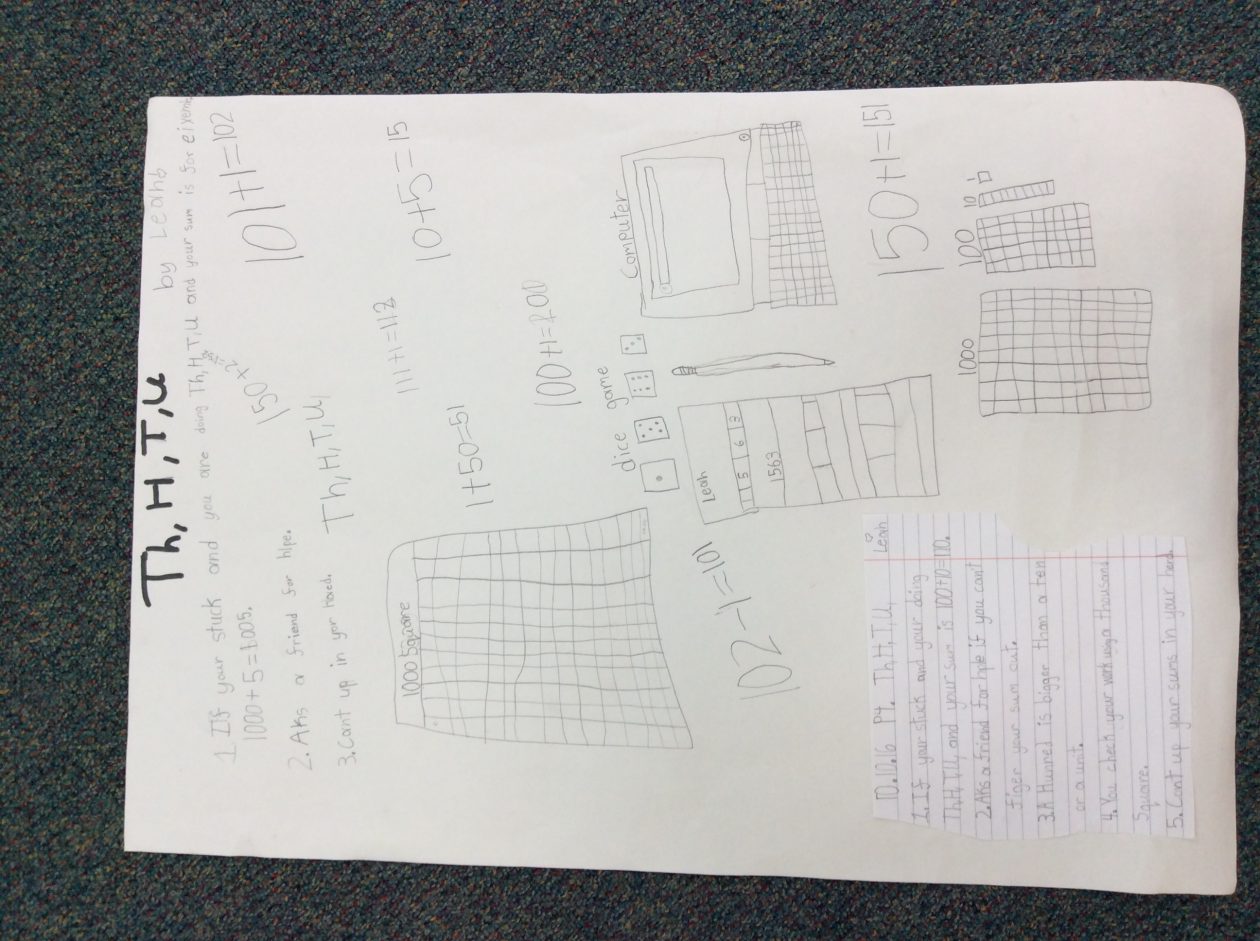 Th, H, T, U
by Leahb
1. If your stuck and you are doing Th, H, T, U and your sum is for
1000 + 5 = 1005.
2. Aks a friend for hlpe.
3. Cant up in yor
Th, H, T, U,
150
101 + 1 = 102
111 + 1 = 112
10 + 5 = 15
1000 Square
1 + 50 = 51
100 + 1 = 200
dice game
Computer
Leah
1 5 6 3
1563
102 - 1 = 101
150 + 1 = 151
1000
100
10
10.10.16 P4 Th, H, T, U, Leah
1. If your stuck and your doing
Th, H, T, U, and your sum is 100+10=110.
2. Aks a friend for hple if you cant
figer your sum out.
3. A Hunned is bigger than a ten
or a unit.
4. You check your work using a thousand
Square.
5. Cant up your sums in your head.